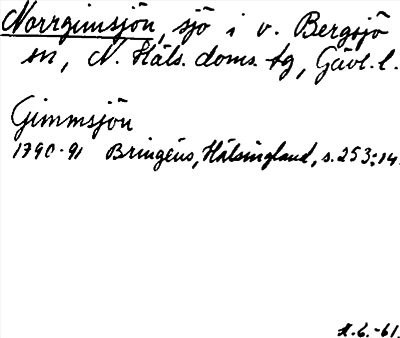 Norrgimsjön, sjö i v. Bergsjö
sn, N. Häls. doms. tg, Gävl. l.
Gimmsjön
1790-91 Bringéus, Hälsingland, s. 253:14.
H.C. -61.